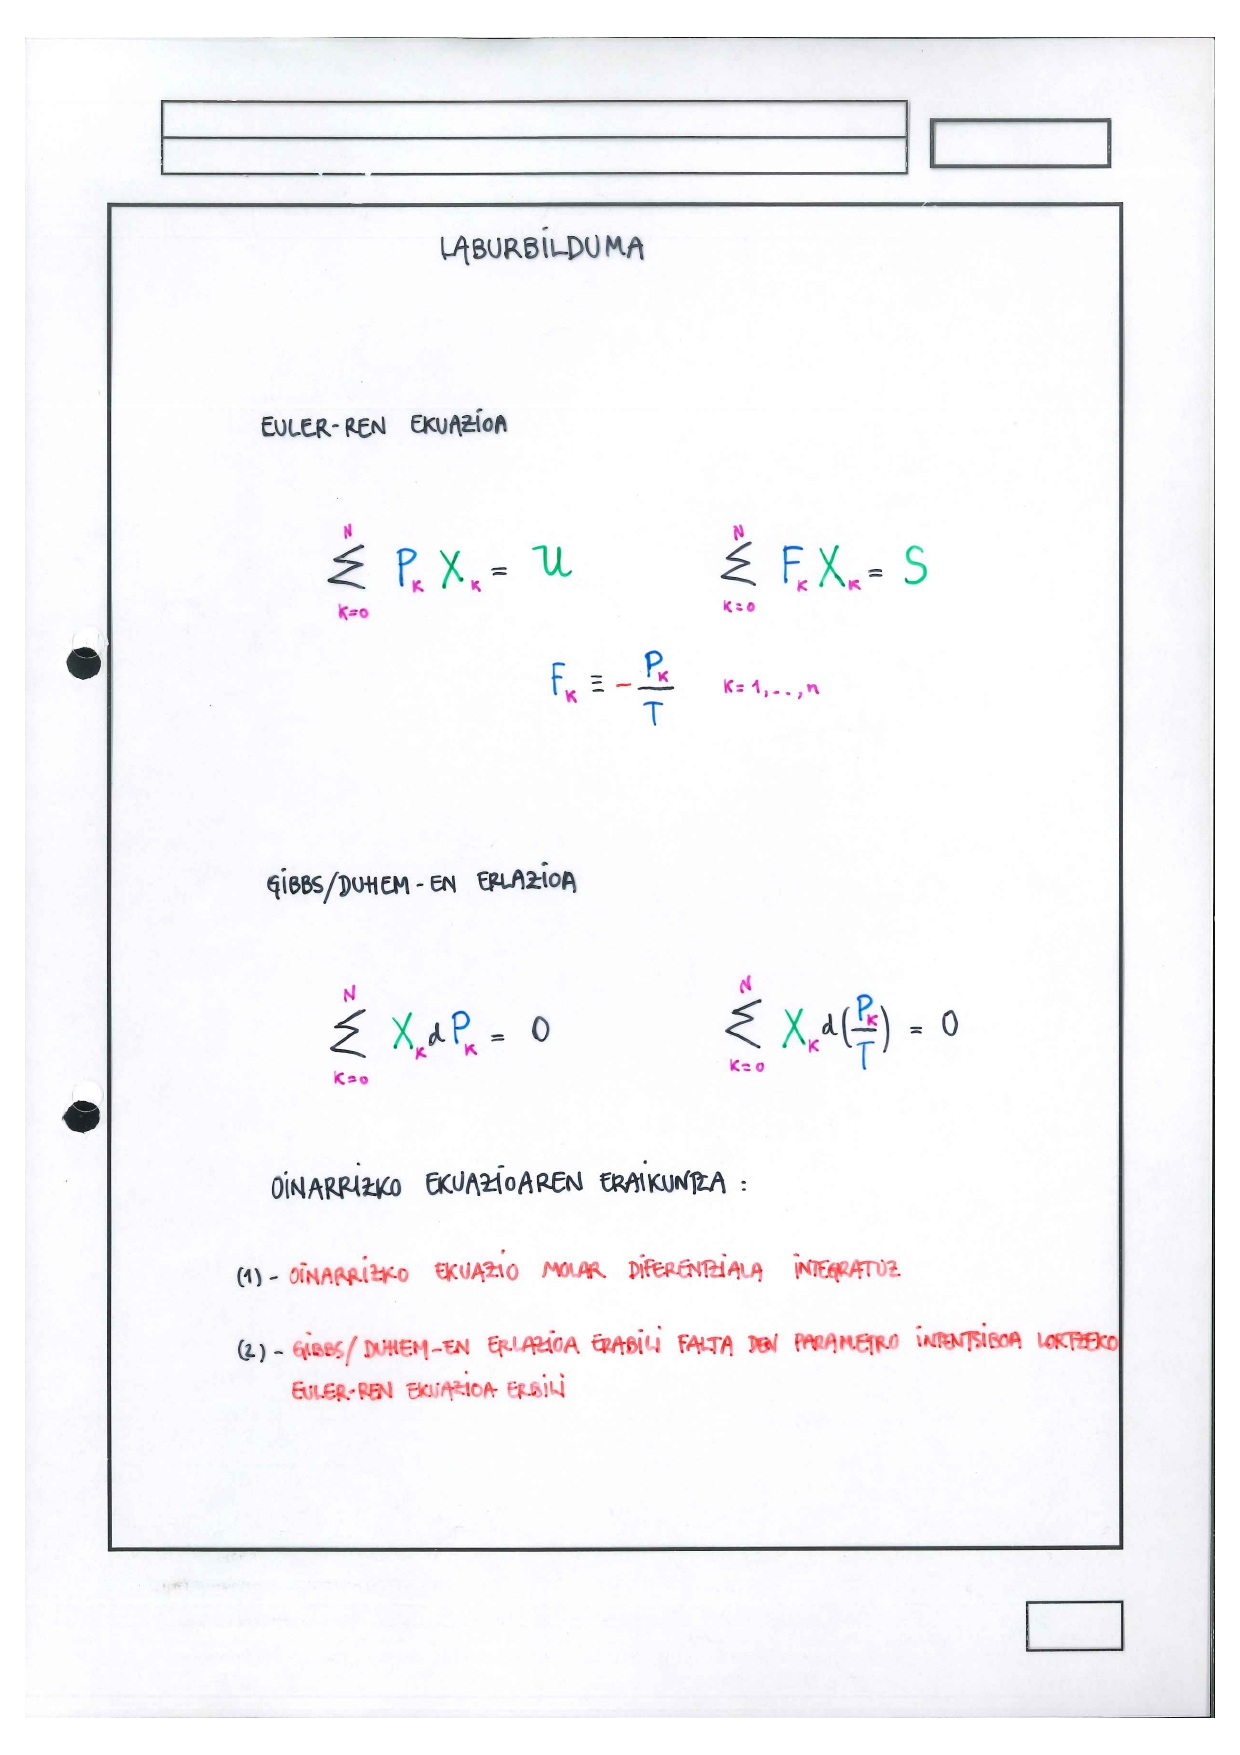 LABURBILDUMA
EULER-REN EKUAZIOA
N ∑ K=0 P_K X_K = U    N ∑ K=0 F_K X_K = S
F_K ≡ - P_K / T    K=1,...,n
GIBBS/DUHEM-EN ERLAZIOA
N ∑ K=0 X_K dP_K = 0    N ∑ K=0 X_K d(P_K / T) = 0
OINARRIZKO EKUAZIOAREN ERAIKUNTZA :
(1) - OINARRIZKO EKUAZIO MOLAR DIFERENTZIALA INTEGRATUZ
(2) - GIBBS/DUHEM-EN ERLAZIOA ERABILI FALTA DEN PARAMETRO INTENTSIBOA LORTZEKO
EULER-REN EKUAZIOA ERBILI